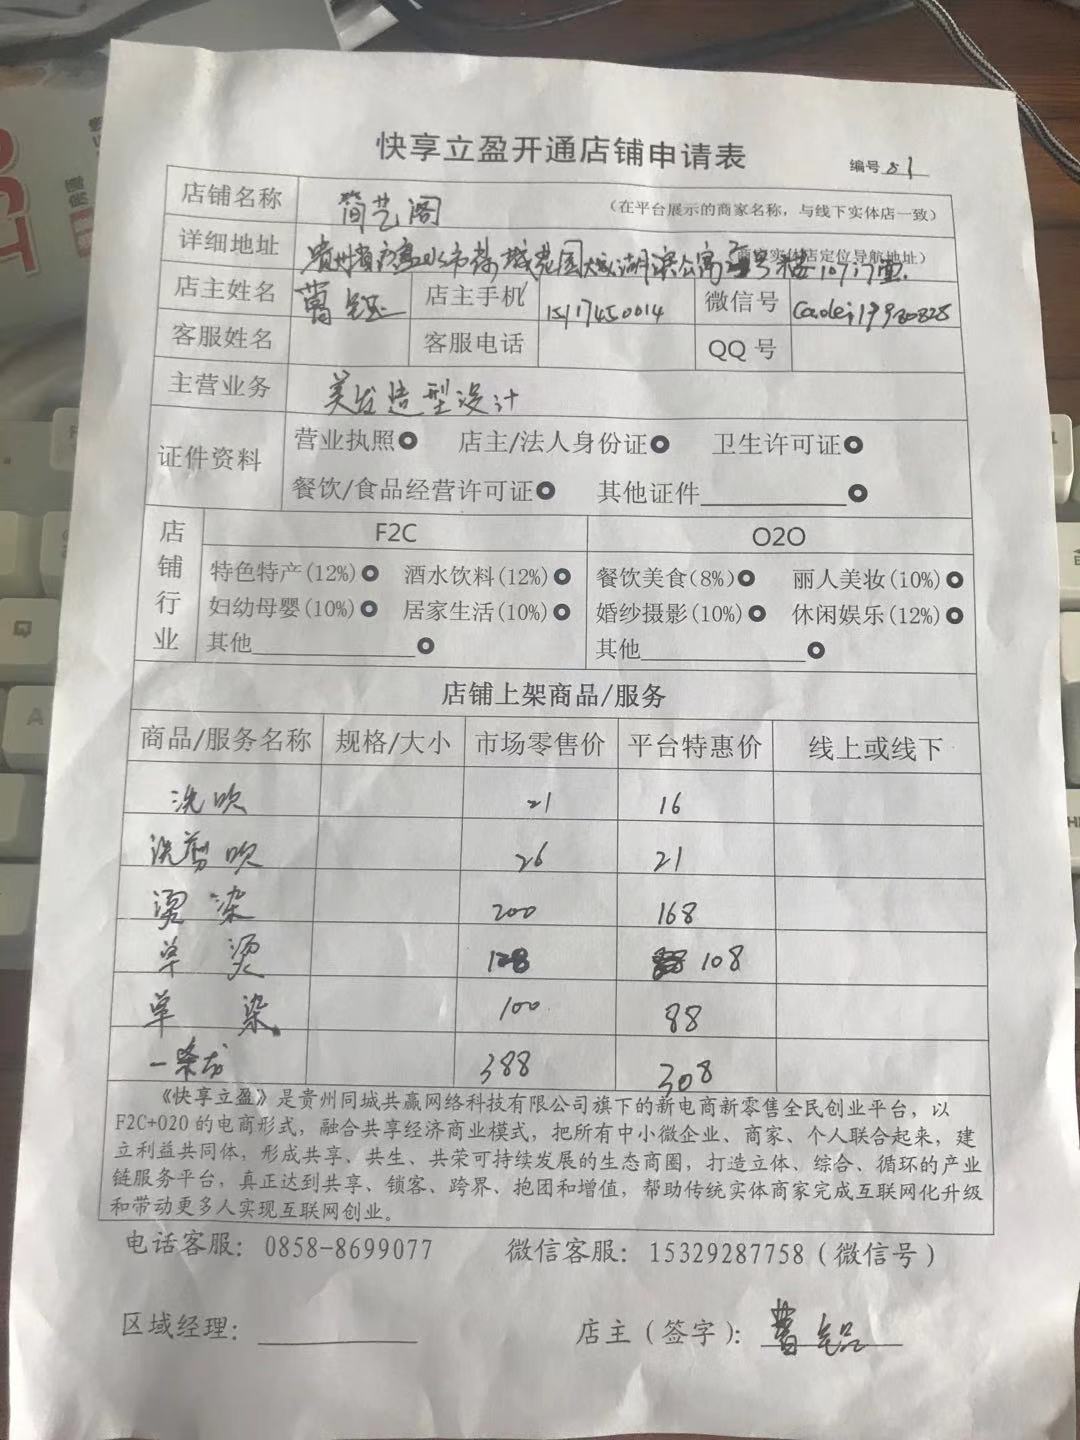 快享立盈开通店铺申请表
编号 01
店铺名称 简艺阁 (在平台展示的商家名称，与线下实体店一致)
详细地址 贵州省六盘水市 花园 湖 公寓 号楼
店主姓名 曹 店主手机 15117450014 微信号
客服姓名 客服电话 QQ 号
主营业务 美发造型设计
证件资料 营业执照 店主/法人身份证 卫生许可证
餐饮/食品经营许可证 其他证件
店铺行业 F2C O2O
特色特产(12%) 酒水饮料(12%) 餐饮美食(8%) 丽人美妆(10%)
妇幼母婴(10%) 居家生活(10%) 婚纱摄影(10%) 休闲娱乐(12%)
其他 其他
店铺上架商品/服务
商品/服务名称 规格/大小 市场零售价 平台特惠价 线上或线下
洗吹 21 16
洗剪吹 26 21
烫 染 200 168
单 烫 128 108
单 染 100 88
一条龙 388 308
《快享立盈》是贵州同城共赢网络科技有限公司旗下的新电商新零售全民创业平台，以
F2C+O2O 的电商形式，融合共享经济商业模式，把所有中小微企业、商家、个人联合起来，建
立利益共同体，形成共享、共生、共荣可持续发展的生态商圈，打造立体、综合、循环的产业
链服务平台，真正达到共享、锁客、跨界、抱团和增值，帮助传统实体商家完成互联网化升级
和带动更多人实现互联网创业。
电话客服：0858-8699077 微信客服：15329287758（微信号）
区域经理： 店主（签字）：曹